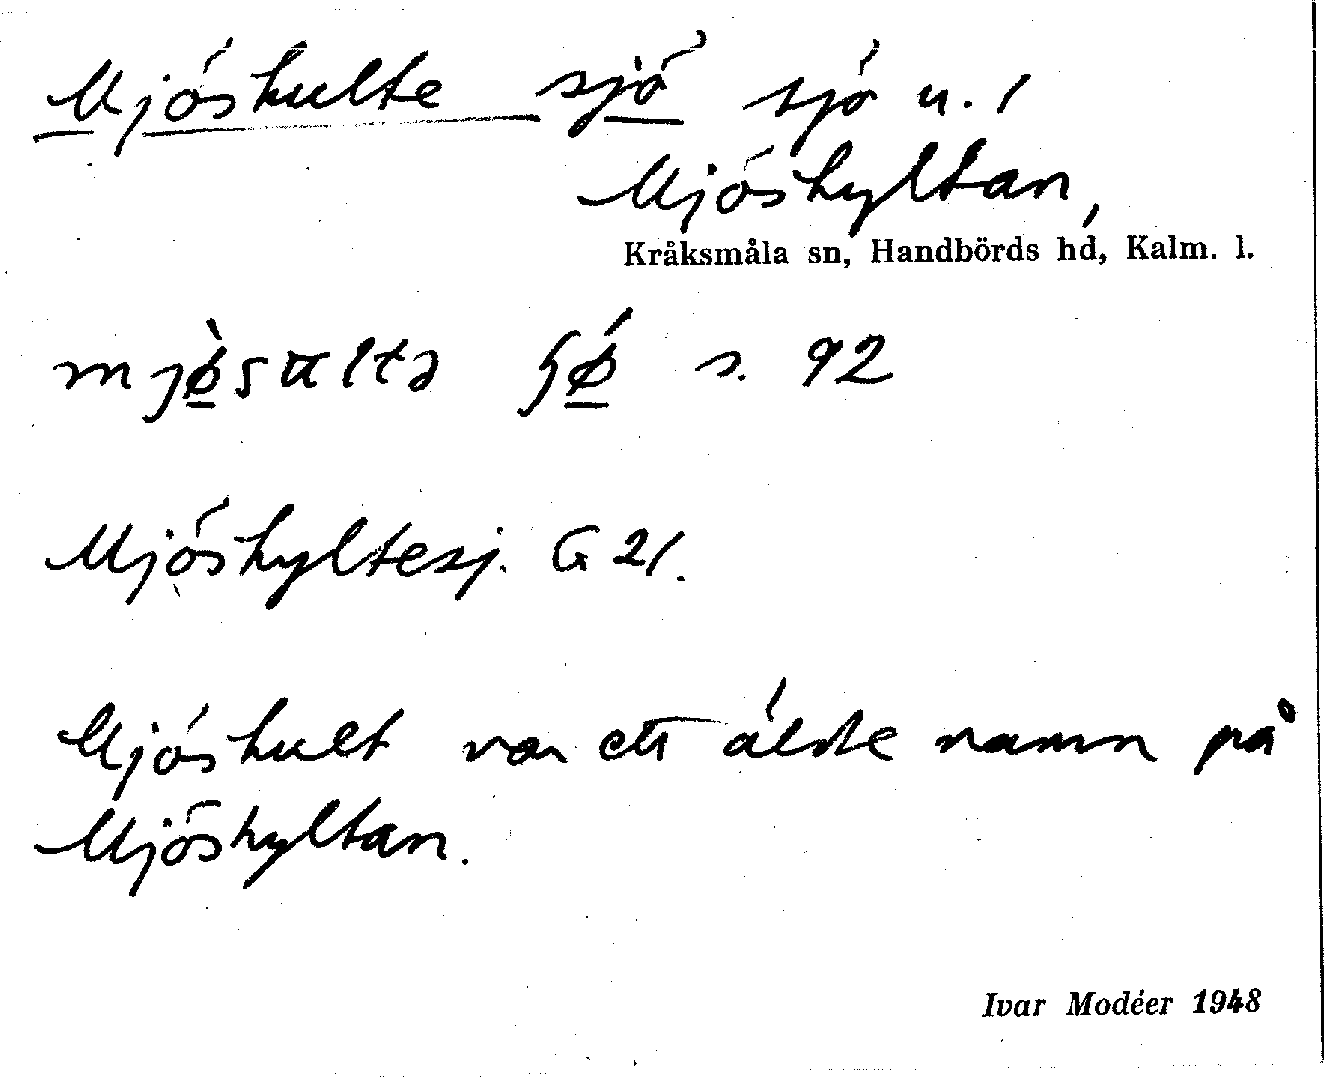 Mjöshulte sjö sjö n. 1
Mjöshyltan,
Kråksmåla sn, Handbörds hd, Kalm. l.
s. 92
Mjöshyltesj. G 21.
Mjöshult var ett äldre namn på
Mjöshyltan.
Ivar Modéer 1948